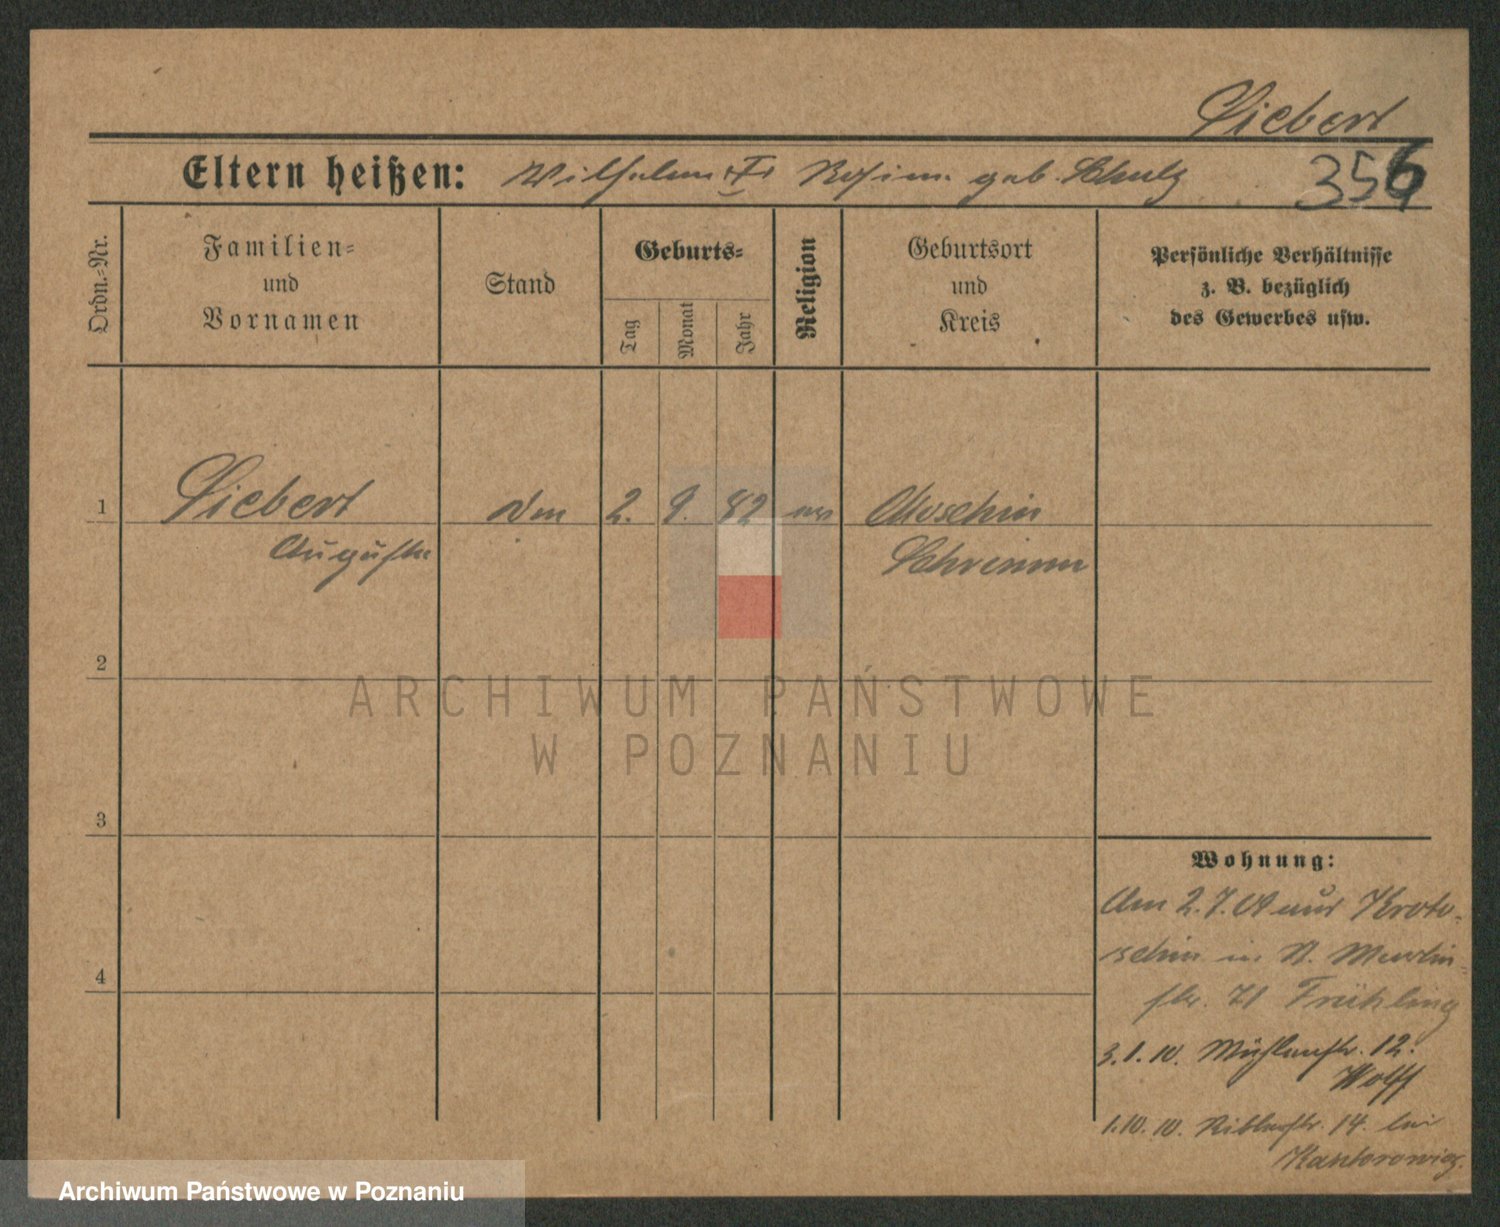 Siebert
Eltern heißen: Wilhelm u. Rosine geb. Schulz 356
Ordn.-Nr.
Familien-
und
Vornamen
Stand
Geburts-
Tag
Monat
Jahr
Religion
Geburtsort
und
Kreis
Persönliche Verhältnisse
z. B. bezüglich
des Gewerbes usw.
1 Siebert 2. 9. 82 Moschin
Auguste Schrimm
2
3
4
Wohnung:
Am 2.7.09 aus Kroto-
schin in St. Martin-
str. 71 Frühling
3.1.10. Mühlenstr. 12.
Wolff
1.10.10. 14 bei
Kantorowicz.
ARCHIWUM PAŃSTWOWE
W POZNANIU
Archiwum Państwowe w Poznaniu